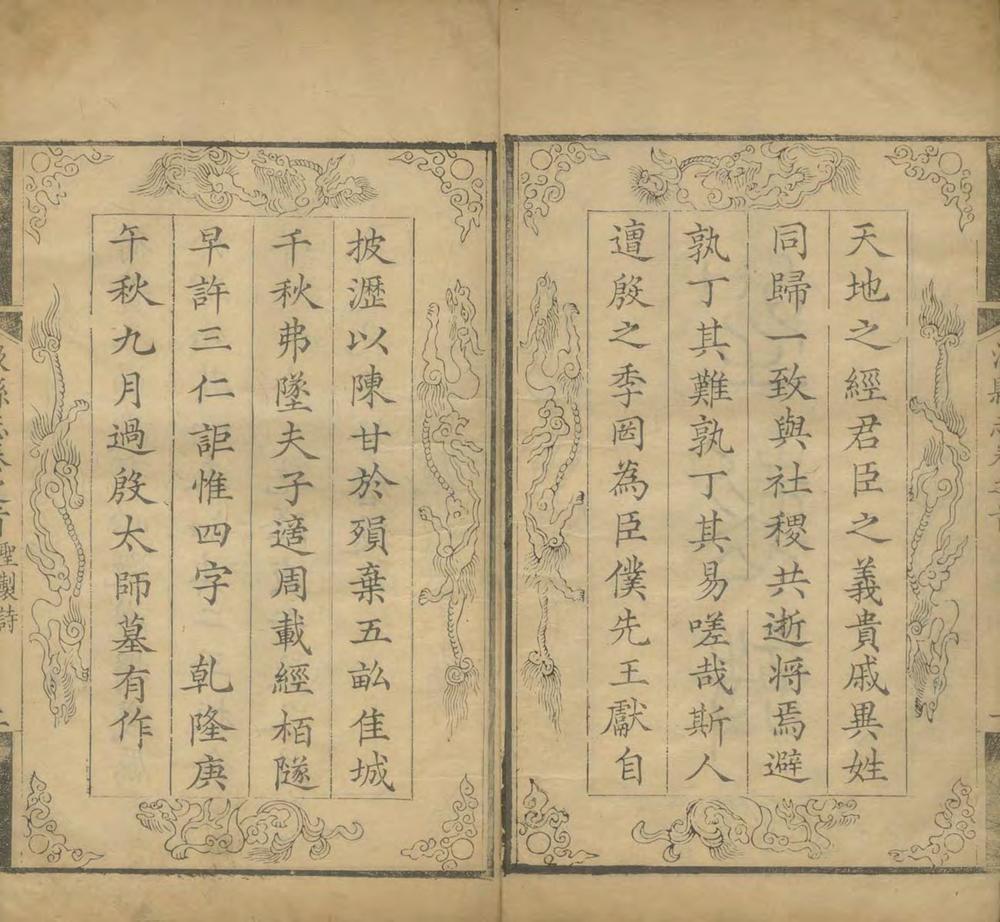 天地之經君臣之義貴戚異姓
同歸一致與社稷共逝將焉避
孰丁其難孰丁其易嗟哉斯人
遭殷之季罔為臣僕先王獻自
披瀝以陳甘於殞棄五畝佳城
千秋弗墜夫子適周載經栢隧
早許三仁詎惟四字 乹隆庚
午秋九月過殷太師墓有作
聖製詩